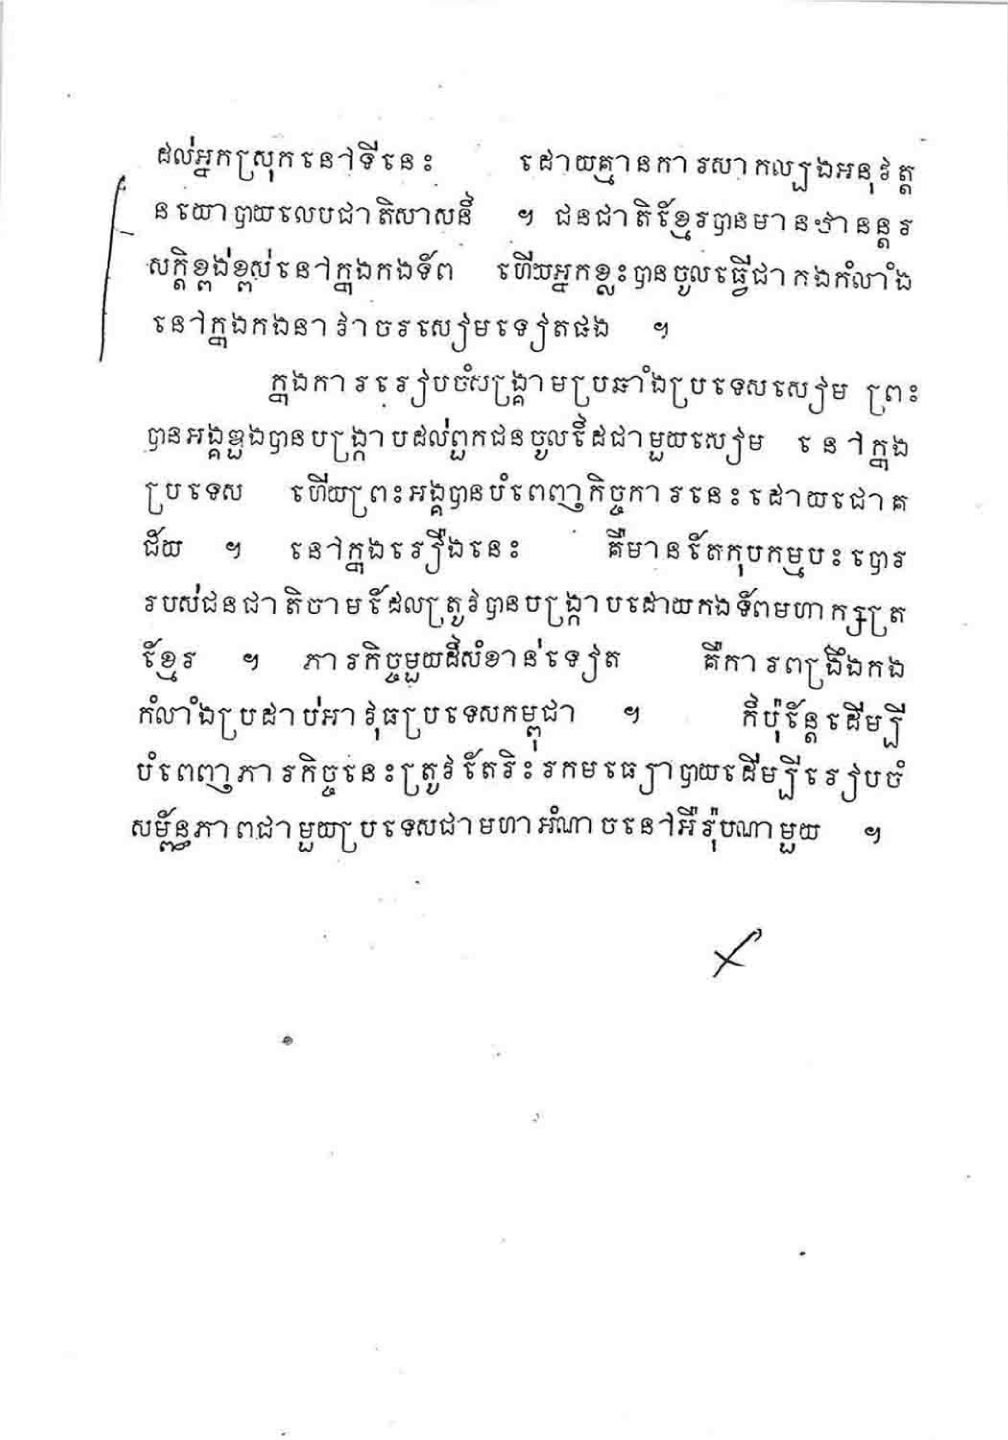 ដល់អ្នកស្រុកនៅទីនេះ ដោយគ្មានការសាកល្បងអនុវត្ត
នយោបាយលេបជាតិសាសន៍ ។ ជនជាតិខ្មែរបានមានឋានន្តរ
សក្តិខ្ពង់ខ្ពស់នៅក្នុងកងទ័ព ហើយអ្នកខ្លះបានចូលធ្វើជាកងកំលាំង
នៅក្នុងកងនាវាចរសៀមទៀតផង ។
ក្នុងការរៀបចំសង្គ្រាមប្រឆាំងប្រទេសសៀម ព្រះ
បានអង្គឌួងបានបង្ក្រាបដល់ពួកជនចូលដៃជាមួយសៀម នៅក្នុង
ប្រទេស ហើយព្រះអង្គបានបំពេញកិច្ចការនេះដោយជោគ
ជ័យ ។ នៅក្នុងរឿងនេះ គឺមានតែកុបកម្មបះបោរ
របស់ជនជាតិចាមដែលត្រូវបានបង្ក្រាបដោយកងទ័ពមហាក្សត្រ
ខ្មែរ ។ ភារកិច្ចមួយដ៏សំខាន់ទៀត គឺការពង្រឹងកង
កំលាំងប្រដាប់អាវុធប្រទេសកម្ពុជា ។ ក៏ប៉ុន្តែដើម្បី
បំពេញភារកិច្ចនេះត្រូវតែរិះរកមធ្យោបាយដើម្បីរៀបចំ
សម្ព័ន្ធភាពជាមួយប្រទេសជាមហាអំណាចនៅអឺរ៉ុបណាមួយ ។